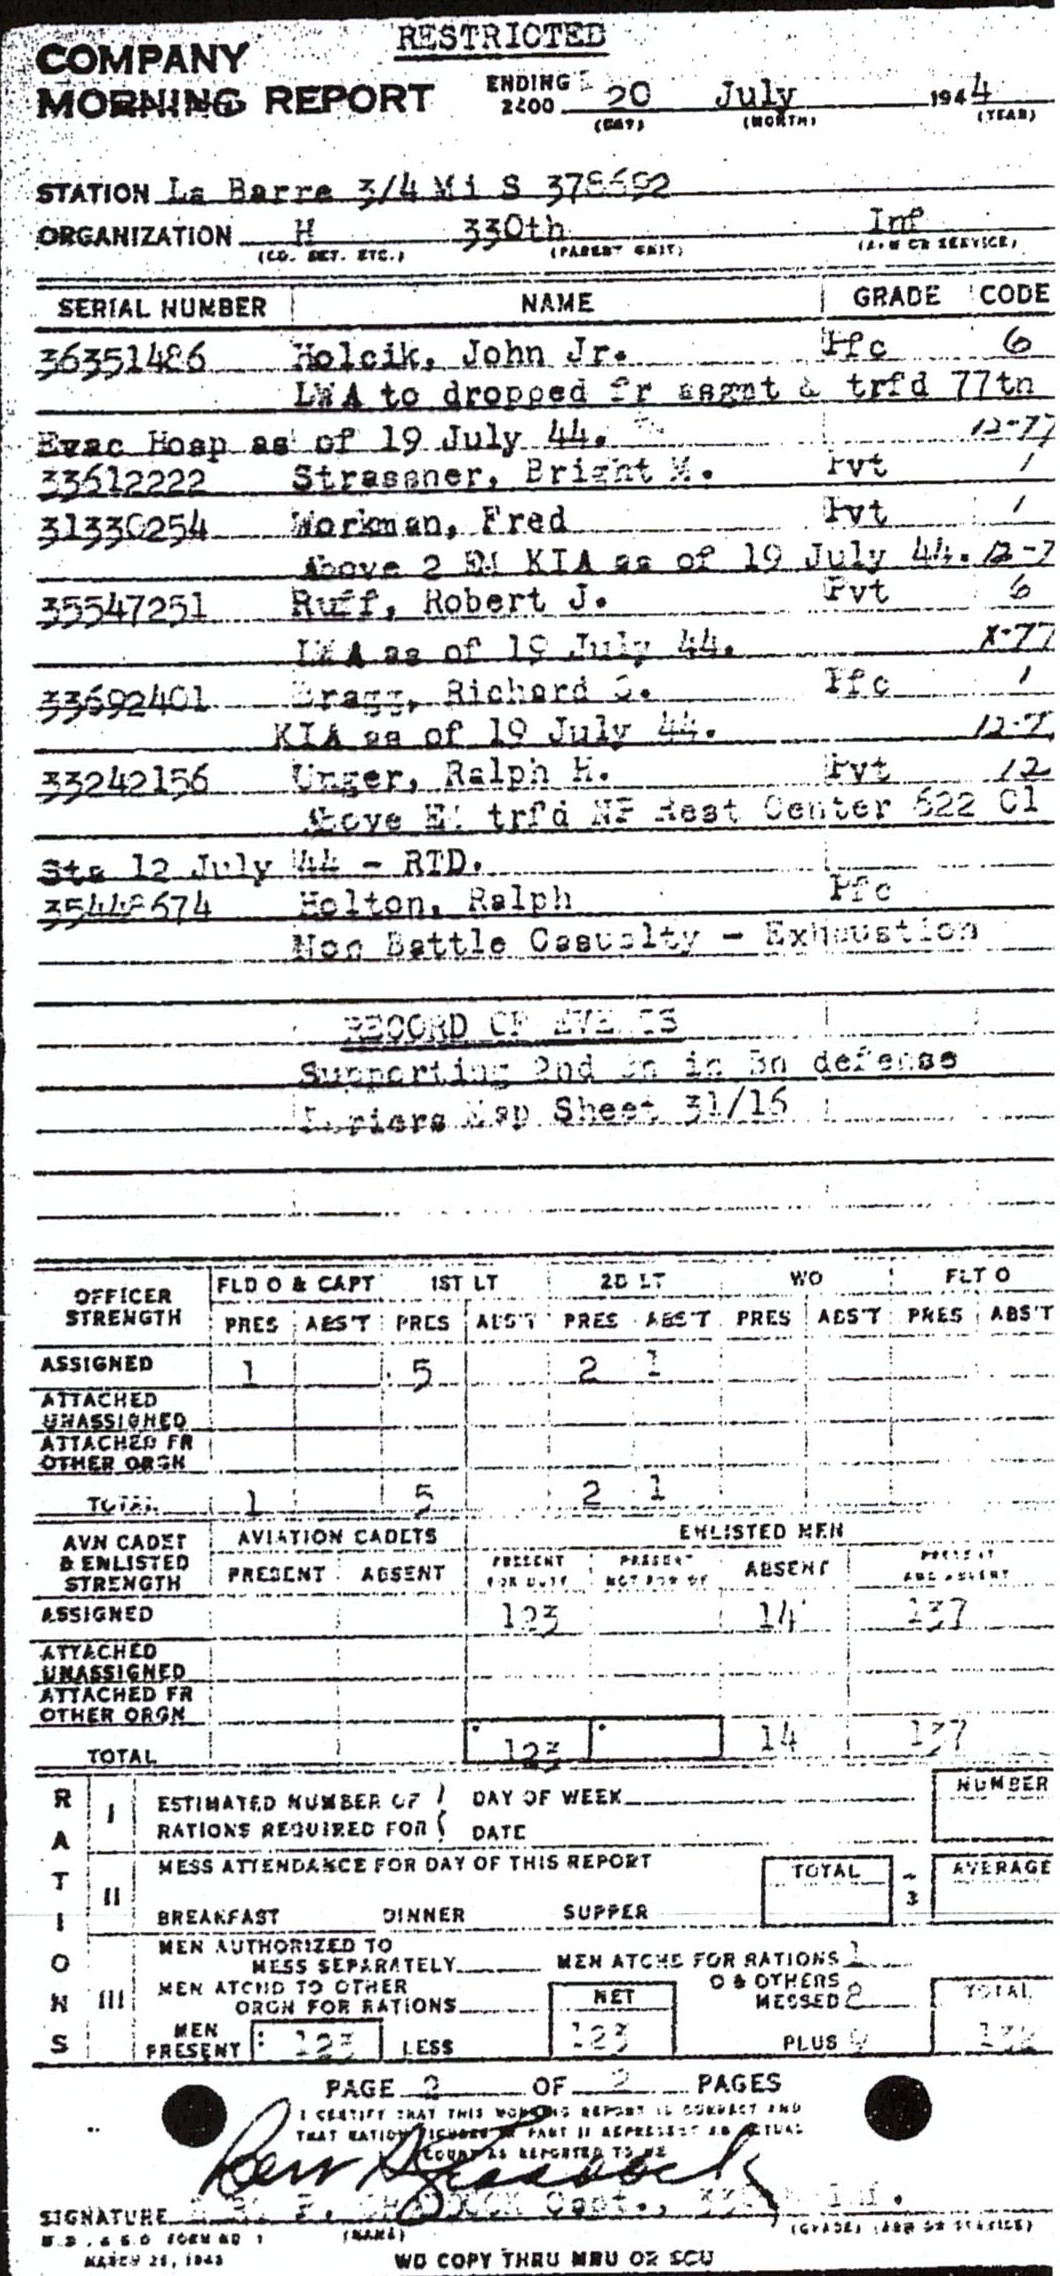 RESTRICTED
COMPANY
MORNING REPORT ENDING 2400 20 July 1944
(DAY) (MONTH) (YEAR)
STATION La Barre 3/4 Mi S 378692
ORGANIZATION H 330th Inf
(CO. DET. ETC.) (PARENT UNIT) (ARM OR SERVICE)
SERIAL NUMBER NAME GRADE CODE
36351486 Holcik, John Jr. Pfc 6
LWA to dropped fr asgmt & trfd 77th
Evac Hosp as of 19 July 44. 12-77
33612222 Strassner, Bright M. Pvt 1
31330254 Workman, Fred Pvt 1
Above 2 EM KIA as of 19 July 44. 12-7
35547251 Ruff, Robert J. Pvt 6
LWA as of 19 July 44. X-77
33692401 Bragg, Richard Pfc 1
KIA as of 19 July 44. 12-7
33242156 Unger, Ralph H. Pvt 12
Above EM trfd NP Rest Center 622 Cl
Sta 12 July 44 - RTD.
35448674 Holton, Ralph Pfc
Non Battle Casualty - Exhaustion
RECORD OF EVENTS
Supporting 2nd Bn in Bn defense
Map Sheet 31/16
OFFICER STRENGTH FLD O & CAPT 1ST LT 2D LT WO FLT O
PRES ABS'T PRES ABS'T PRES ABS'T PRES ABS'T PRES ABS'T
ASSIGNED 1 5 2 1
ATTACHED UNASSIGNED
ATTACHED FR OTHER ORGN
TOTAL 1 5 2 1
AVN CADET & ENLISTED STRENGTH AVIATION CADETS ENLISTED MEN
PRESENT ABSENT PRESENT FOR DUTY PRESENT NOT FOR DY ABSENT PRESENT AND ABSENT
ASSIGNED 123 14 137
ATTACHED UNASSIGNED
ATTACHED FR OTHER ORGN
TOTAL 123 14 137
RATIONS
I ESTIMATED NUMBER OF RATIONS REQUIRED FOR DAY OF WEEK DATE NUMBER
II MESS ATTENDANCE FOR DAY OF THIS REPORT TOTAL ÷ 3 AVERAGE
BREAKFAST DINNER SUPPER
III MEN AUTHORIZED TO MESS SEPARATELY MEN ATCHD FOR RATIONS 1
MEN ATCHD TO OTHER ORGN FOR RATIONS NET O & OTHERS MESSED 8 TOTAL
MEN PRESENT 123 LESS 123 PLUS 9 132
PAGE 2 OF 2 PAGES
I CERTIFY THAT THIS MORNING REPORT IS CORRECT AND
THAT RATION FIGURES IN PART II REPRESENT AN ACTUAL
COUNT AS REPORTED TO ME
SIGNATURE Capt.,
(NAME) (GRADE) (ARM OR SERVICE)
W.D., A.G.O. FORM NO 1
MARCH 25, 1943
WD COPY THRU MRU OR SCU